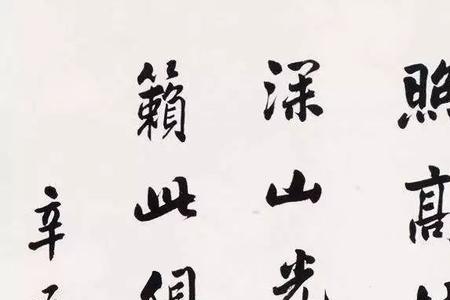 照高
深山光
籟此俱
辛